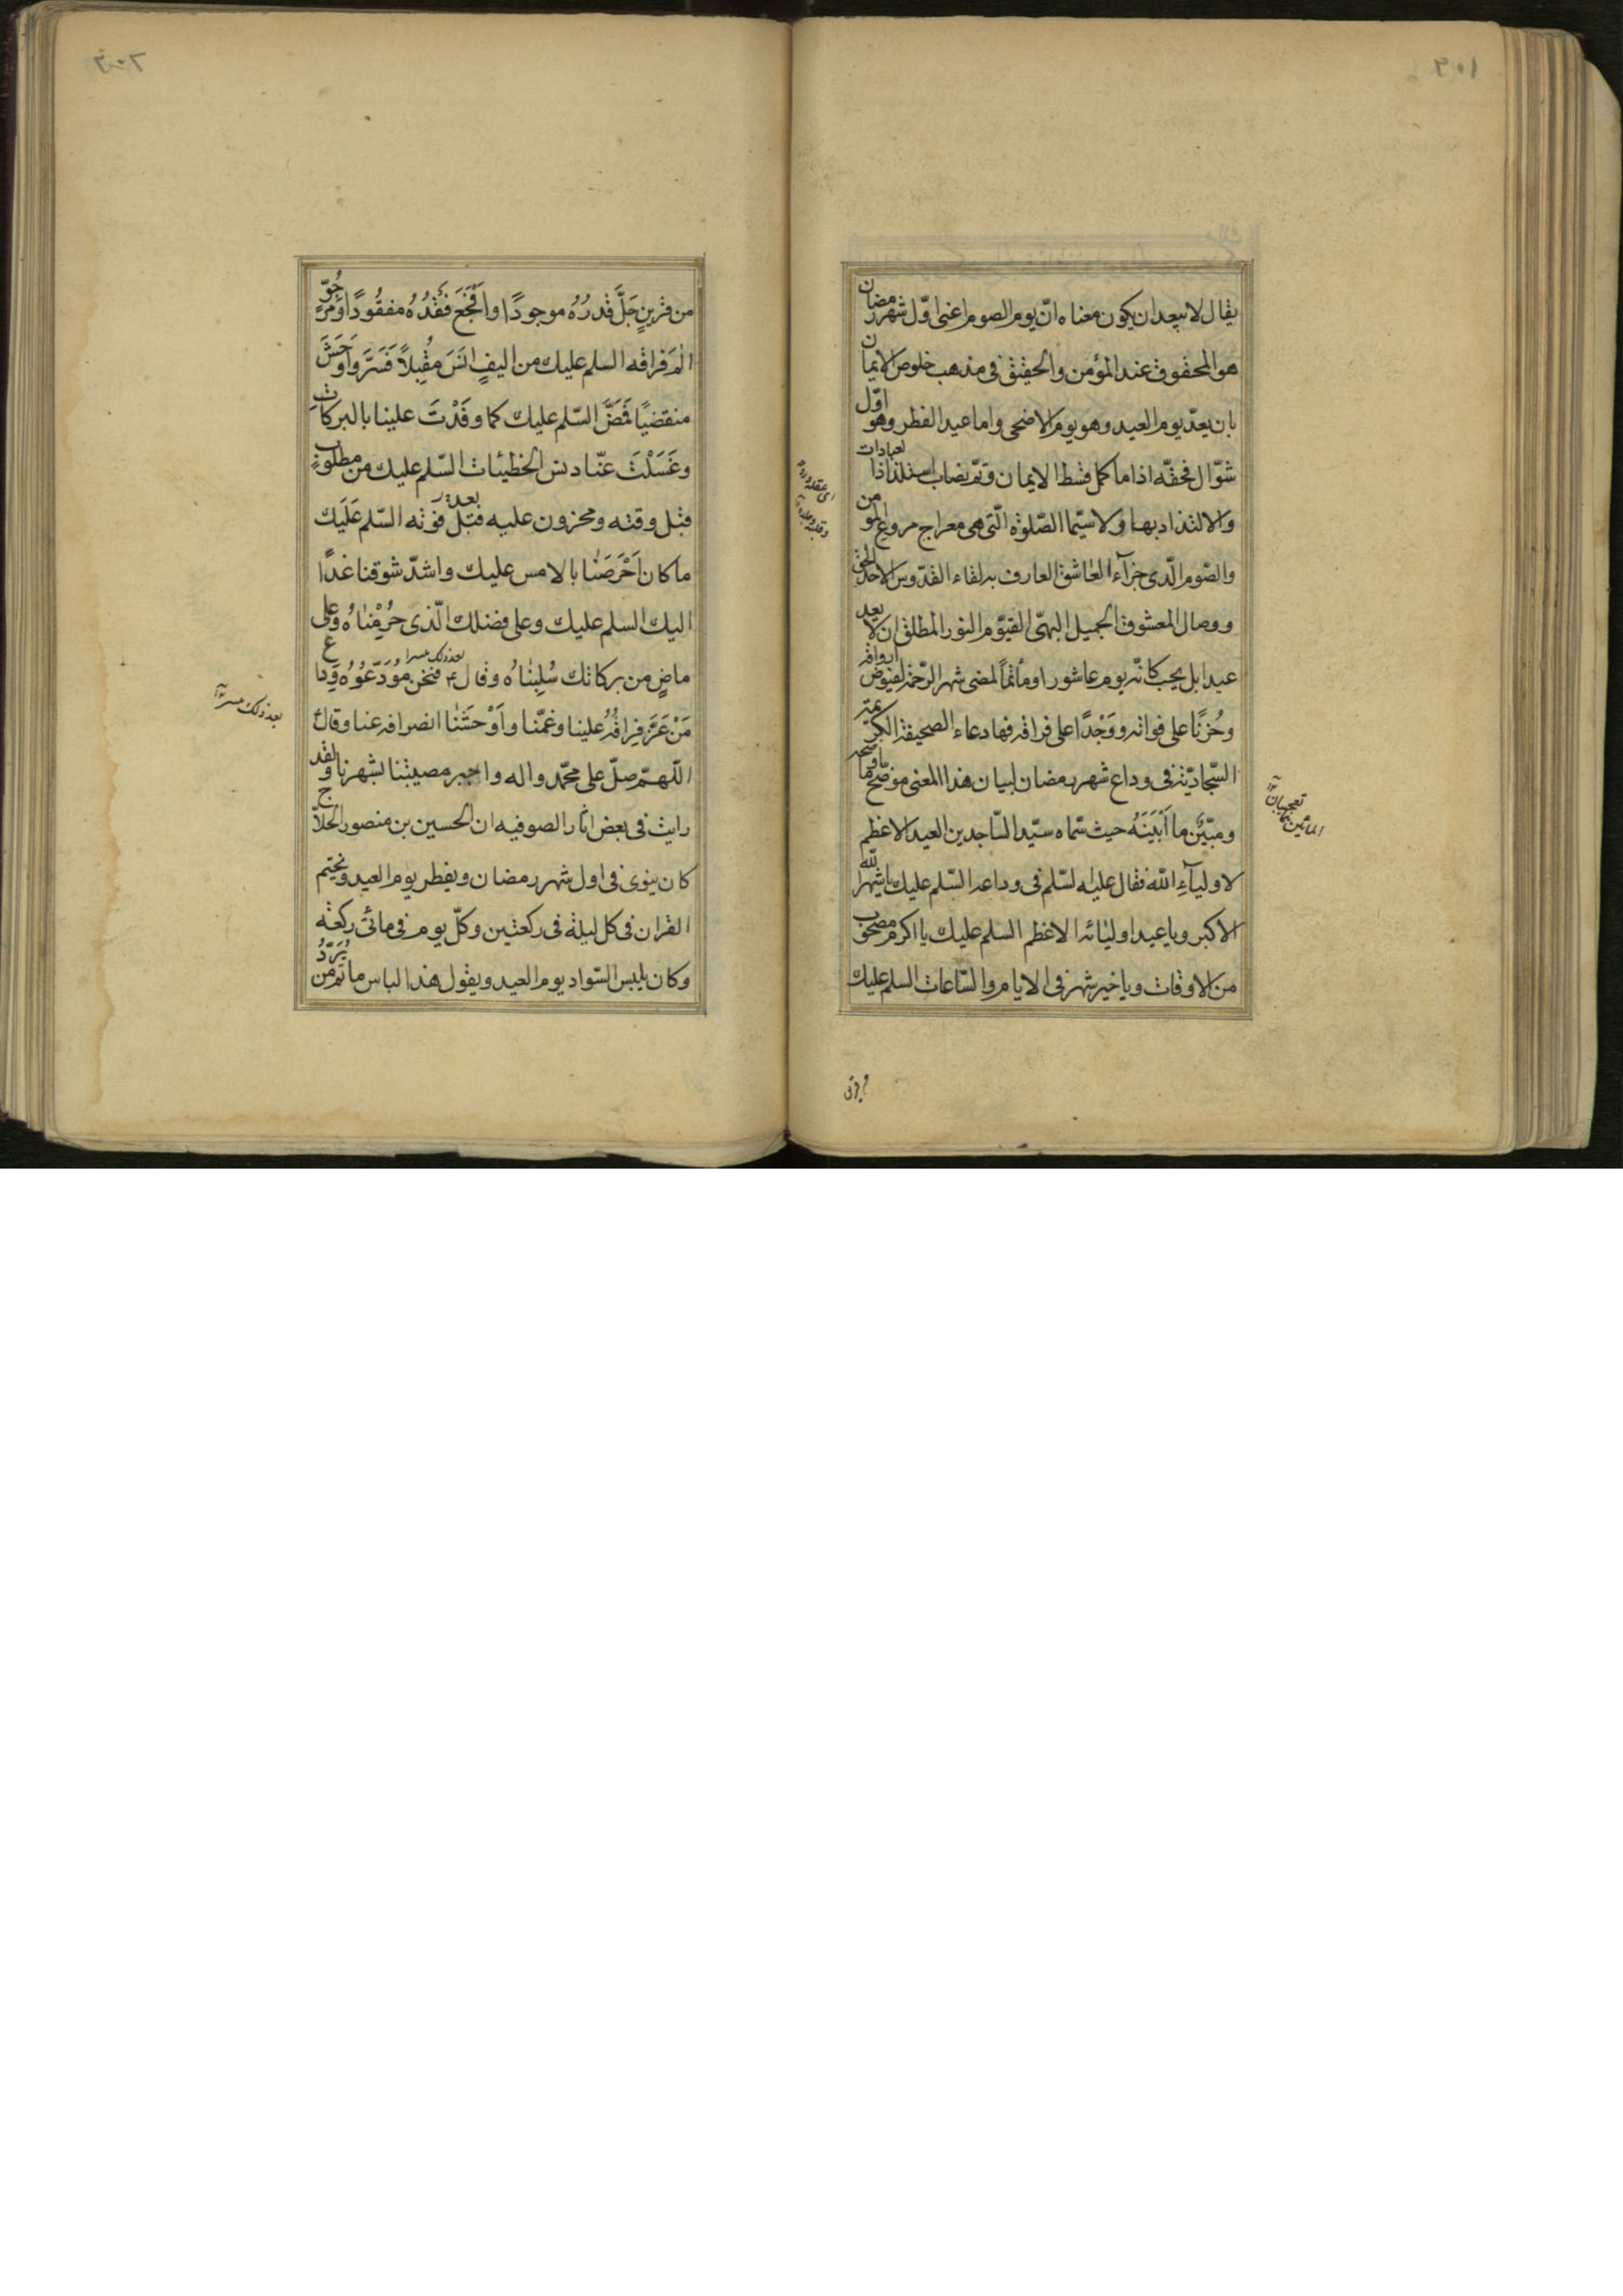 يقال لا يبعد ان يكون معناه انّ يوم الصوم اعنى اوّل شهر رمضان
هو المحقوق عند المؤمن والحقيق فى مذهب خلوص الايمان
بان يعدّ يوم العيد وهو يوم الاضحى واما عيد الفطر وهو اوّل
شوّال فحقّه اذا ما كمل قسط الايمان وتمّ نصاب استلذاذ العبادات
والالتذاذ بها ولا سيّما الصّلوة الّتى هى معراج روع المؤمن
والصّوم الّذى جزآء العاشق العارف به لقاء القدّوس الاحد الحق
ووصال المعشوق الجميل البهىّ القيّوم النور المطلق ان لا يعد
عيدا بل يحب كانّه يوم عاشورا ومأتماً لمضى شهر الرّحمة لفيوض ابوافه
وحُزنًا على فواته ووَجْدًا على فراقه فهاد دعاء الصحيفة الكرّيمة
السّجاديّة فى وداع شهر رمضان لبيان هذا المعنى موضح ما اوضحه
ومبيّن ما اَبْيَنَهُ حيث سمّاه سيّد السّاجدين العيد الاعظم
لاوليآءِ الله فقال عليه السّلم فى وداعه السّلم عليك يا شهر الله
الاكبر ويا عيد اوليائه الاعظم السلم عليك يا اكرم مصحوب
من الاوقات ويا خير شهر فى الايام والسّاعات السلم عليك
من قرينٍ جَلَّ قَدرُهُ موجودًا واَفْجَعَ فَقْدُهُ مفقُودًا ومرجُوّ
اٰلَمَ فراقه السلم عليك من اليفٍ انَسَ مقُبِلاً فَسَرَّ واَوحَشَ
منقضيًا فَمَضَّ السّلم عليك كما وفَدْتَ علينا بالبركات
وغَسَلْتَ عنّا دنس الخطيئات السّلم عليك من مطلوبٍ
قبل وقته ومحزون عليه قبل فوته السّلم عَلَيك
ما كان اَحْرَصَنٰا بالامس عليك واشدّ شوقنا غدًا
اليك السلم عليك وعلى فضلك الّذى حُرِمْنٰاهُ وعلى
ماضٍ من بركاتك سُلِبْنٰاهُ وقال فنحن مُوَدّعُوُهُ وِدَاع
مَنْ عَزَّ فِراقُهُ علينا وغمّنا واَوْحَشَنٰا انصرافه عنا وقال
اللّهمّ صلّ على محمّد واله واجبر مصيبتنا بشهرنا ولقد
رايت فى بعض اثار الصوفيه ان الحسين بن منصور الحلاّج
كان ينوى فى اول شهر رمضان ويفطر يوم العيد ويختم
القران فى كل ليلة فى ركعتين وكلّ يوم فى مائتى ركعة
وكان يلبس السّواد يوم العيد ويقول هذا لباس ماتم من يُرَدّ
بعد ذلك